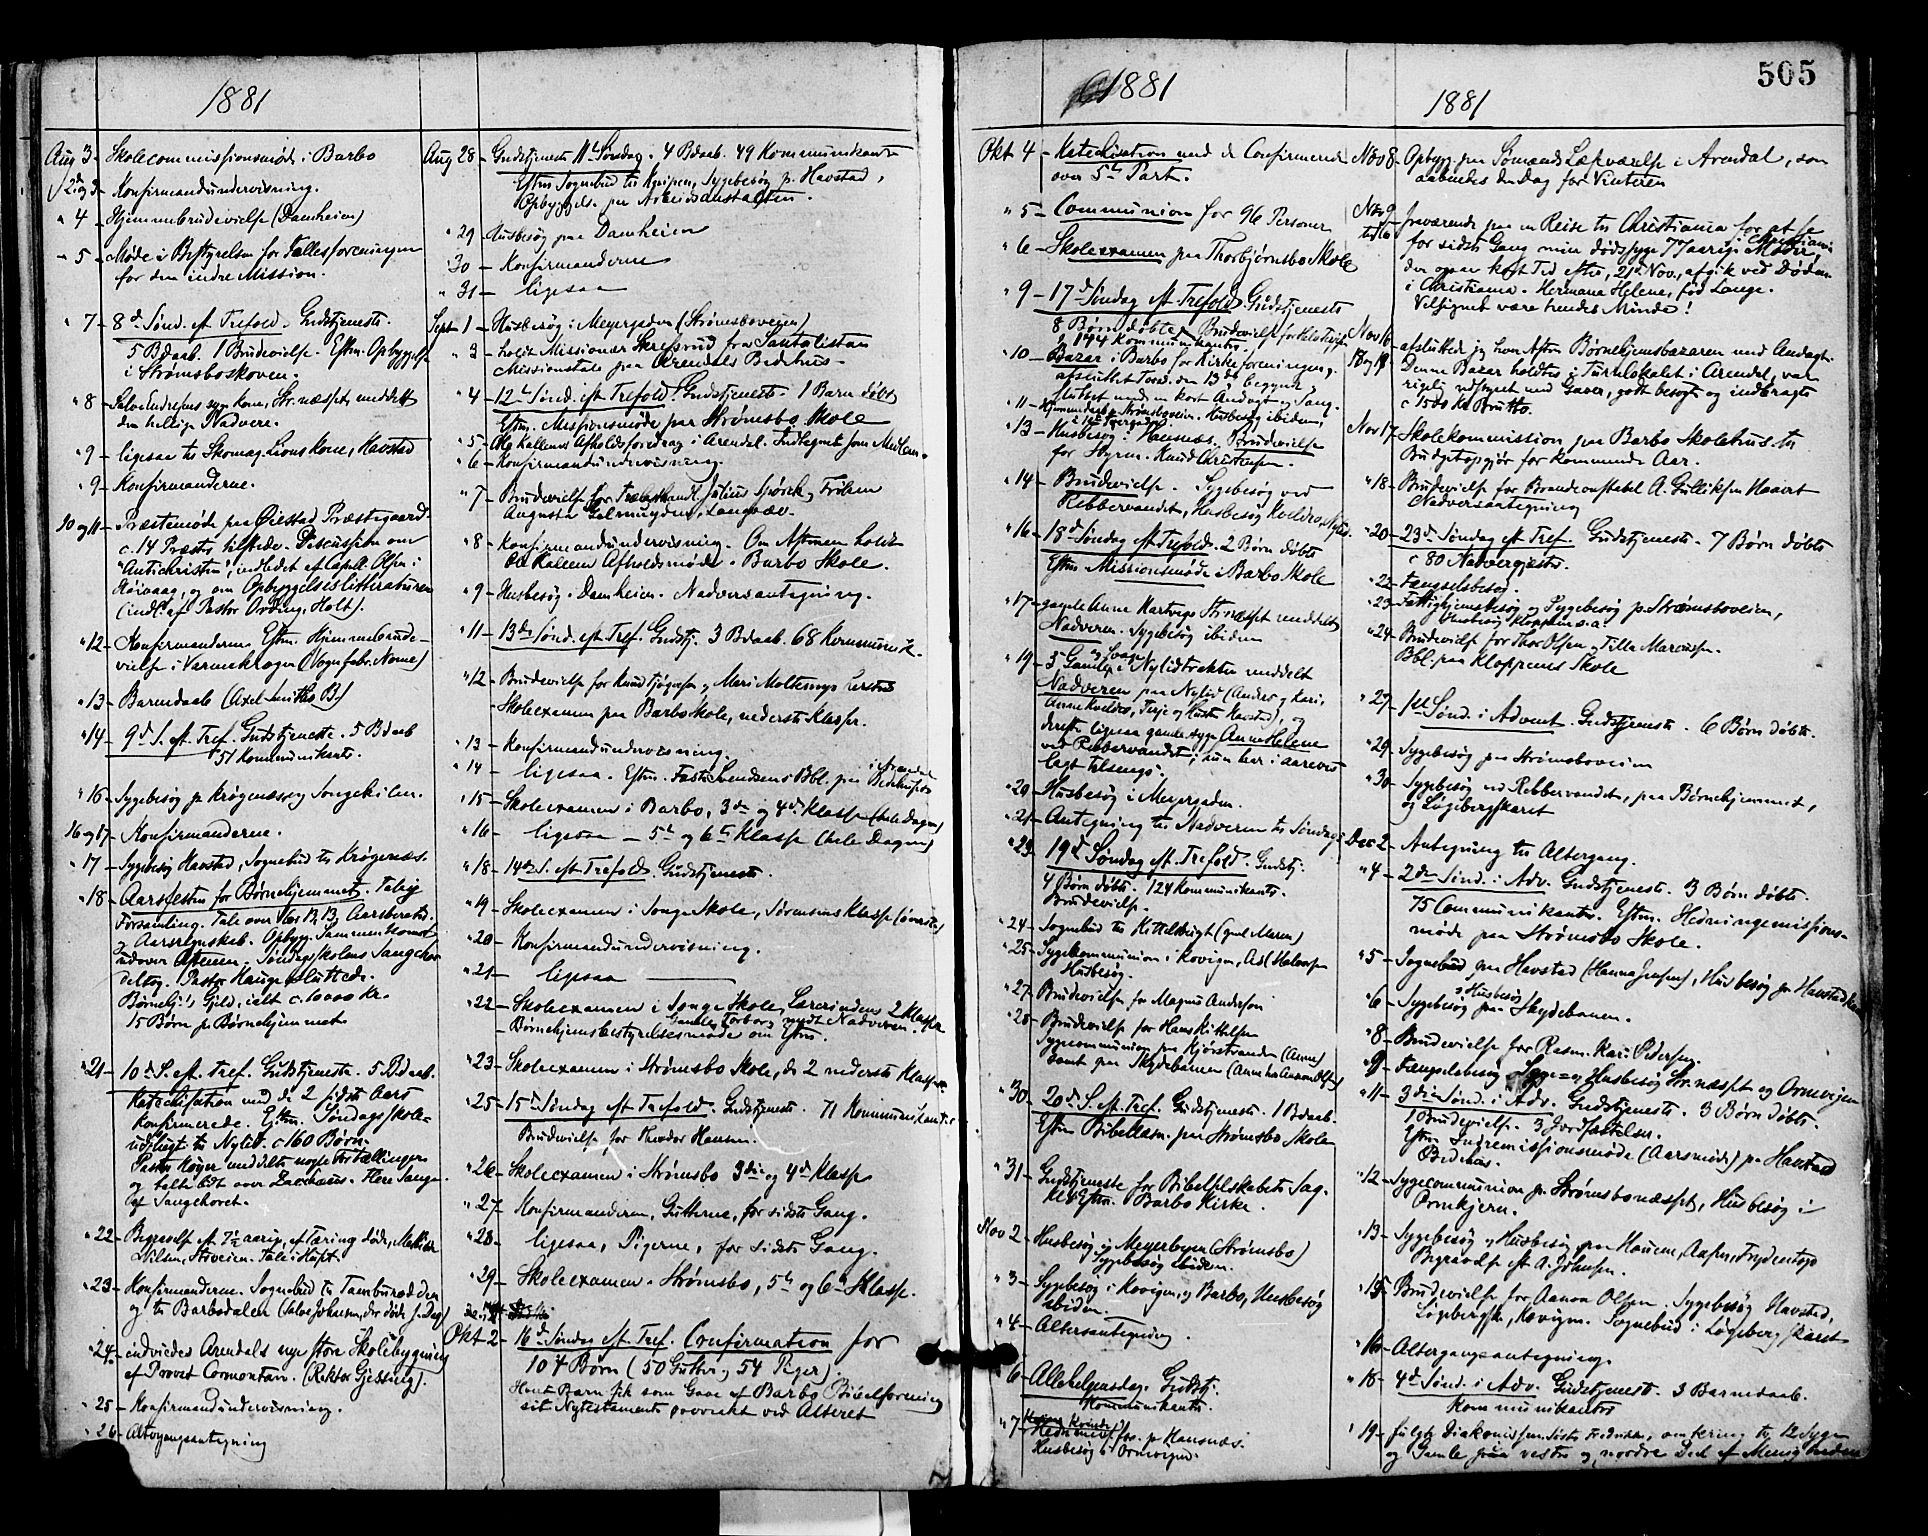 1881
Aug 3 - Skolecommissionsmøde i Barbo
2 og 3 - Konfirmandundervisning.
" 4 - Hjemmebrudevielse (Damheien)
" 5 - Møde i Bestyrelsen for Fællesforeningen
for den indre Mission.
" 7 - 8de Sønd. eft. Trefold. Gudstjeneste.
5 Bdaab. 1 Brudevielse. Eftm. Opbyggelse
i Strømsboskoven.
" 8 - syge Kone, Str.næsset, meddelt
den hellige Nadvere.
" 9 - ligesaa til Skomag. Kone, Havstad
" 9 - Konfirmanderne.
10 og 11 - Præstemøde paa Øiestad Præstegaard.
c. 14 Præster tilstede. Discussion om
"Antichristen", indledet af Capel. Olsen i
Høivaag, og om Opbyggelseslitteraturen
(indl. af Pastor Ording, Holt).
" 12 - Konfirmanderne. Eftm. Hjemmebrude-
vielse i Varmekrogen (Vognfabr. Nome)
" 13 - Barnedaab (Axel Smiths B.)
" 14 - 9de S. eft. Tref. Gudstjeneste. 5 Bdaab
51 Kommunikanter.
" 16 - Sygebesøg p. Krøgenæs og Songekilen.
16 og 17 - Konfirmanderne.
" 17 - Sygebesøg Havstad, Sognebud til Krøgenæs.
" 18 - Aarsfesten for Børnehjemmet. Talrig
Forsamling. Tale over Aarsberetn.
og Aarsregnskab. Opbyg. Sammenkomst
udover Aftenen. Søndagsskolens Sangchor
deltog. Pastor Hauge sluttede.
Børnehj.s Gjeld, ialt c. 10000 Kr.
15 Børn p. Børnehjemmet.
" 21 - 10de S. eft. Tref. Gudstjeneste. 5 Bdaab.
Katechisation med de 2 sidste Aars
Konfirmerede. Eftm. Søndagsskole-
udflugt til Nylid. c. 160 Børn.
Pastor Køyer meddelte nogle Fortællinger
og talte lidt over Zachæus. Flere Sange
af Sangchoret.
" 22 - Begravelse af aarig, af Tæring døde,
Nilsen, Tale i Huset.
" 23 - Konfirmanderne. Sognebud til
og til Barbodalen (Salve Johnsen, der døde s. Dag)
" 24 - indviedes Arendals nye store Skolebygning
af Provst Cormontan. (Rektor Gjessing).
" 25 - Konfirmandundervisning.
" 26 - Altergangsantegning
Aug 28 - Gudstjeneste 11te Søndag. 4 Bdaab. 49 Kommunikanter
Eftm. Sognebud til Sygebesøg p. Havstad,
Opbyggelse paa Arbeidsanstalten.
" 29 - Husbesøg paa Damheien
" 30 - Konfirmanderne
" 31 - ligesaa
Sept 1 - Husbesøg i Meyergaden (Strømsboveien)
" 3 - holdt Missionær Skrefsrud fra Santalistan
Missionstale paa Arendals Bedehus.
" 4 - 12te Sønd. eft. Trefold. Gudstjeneste. 1 Barn døbt
Eftm. Missionsmøde paa Strømsbo Skole
" 5 - Ole Kallems Afholdsforedrag i Arendal. Indtegnet som Medlem.
" 6 - Konfirmandundervisning.
" 7 - Brudevielse for Julius Spørck og Frøken
Augusta Langsæv.
" 8 - Konfirmandundervisning. Om Aftenen holdt
Ole Kallem Afholdsmøde. Barbo Skole.
" 9 - Husbesøg. Damheien. Nadverantegning.
" 11 - 13de Sønd. eft. Tref. Gudstj. 3 Bdaab. 68 Kommunik.
" 12 - Brudevielse for Knud og
Skoleexamen paa Barbo Skole, nederste Klasse.
" 13 - Konfirmandundervisning.
" 14 - ligesaa. Eftm. Svendsens Bbl. paa Bedehuset i Arendal
" 15 - Skoleexamen i Barbo, 3die og 4de Klasse (hele Dagen)
" 16 - ligesaa - 5te og 6te Klasse (hele Dagen)
" 18 - 14de S. eft. Trefold. Gudstjeneste.
" 19 - Skoleexamen i Songe Skole, Sørensens Klasse (øverste)
" 20 - Konfirmandundervisning.
" 21 - ligesaa
" 22 - Skoleexamen i Songe Skole, Lærerindens 2 Klasser
Gamle Torborg meddt Nadveren.
- Børnehjemsbestyrelsesmøde om Eftm.
" 23 - Skoleexamen i Strømsbo Skole, de 2 nederste Klasser
" 25 - 15de Søndag eft. Trefold. Gudstjeneste. 71 Kommunikanter
Brudevielse for Theodor Hansen.
" 26 - Skoleexamen i Strømsbo 3die og 4de Klasse
" 27 - Konfirmanderne, Gutterne, for sidste Gang.
" 28 - ligesaa, Pigerne, for sidste Gang.
" 29 - Skoleexamen. Strømsbo, 5te og 6te Klasse.
Okt 2 - 16de Søndag eft. Tref. Confirmation for
104 Børn (50 Gutter og 54 Piger).
Hvert Barn fik som Gave af Barbo Bibelforening
sit Nytestamente overrakt ved Alteret
1881
Okt 4 - Katechisation med de Confirmerede
over 5te Part.
" 5 - Communion for 96 Personer
" 6 - Skoleexamen paa Thorbjørnsbo Skole
" 9 - 17de Søndag eft. Trefold. Gudstjeneste
8 Børn døbte. Brudevielse for
144 Kommunikanter.
" 10 - Bazar i Barbo for Kirkeforeningen,
afsluttet Torsd. den 13de. Begyndt og
sluttet med en kort Andagt og Sang.
" 11 - p. Strømsboveien. Husbesøg ibidem,
" 13 - Husbesøg i Hansnæs. Brudevielse
for Styrm. Knud Christensen.
" 14 - Brudevielse. Sygebesøg ved
Rebbervandet, Husbesøg Kvelden, Nylid.
" 16 - 18de Søndag eft. Trefold. 2 Børn døbte
Eftm. Missionsmøde i Barbo Skole
" 17 - gamle Anne Str.næsset meddelt
Nadveren. Sygebesøg ibidem
" 19 - 3 Gamle og Svage i Nylidtrakten meddelt
Nadveren paa Nylid (Anders og Kari,
Anne Kvelden, Terje og Hustru Havstad), og
derefter ligesaa gamle syge Anne Helene
ved Rebbervandet; hun har i aarevis
lagt tilsengs.
" 20 - Husbesøg i Meyergaden.
" 21 - Antegning til Nadveren til Søndag
" 23 - 19de Søndag eft. Trefold. Gudstj.
4 Børn døbte. 124 Kommunikanter.
Brudevielse.
" 24 - Sognebud til Kittelsbugt (gml Maren)
" 25 - Sygekommunion i Kovigen, Asl. Halvorsen
Husbesøg.
" 27 - Brudevielse for Magnus Anderson
" 28 - Brudevielse for Hans Kittelsen
Sygecommunion paa Kjørstranden (Anne)
samt paa Skydebanen
" 30 - 20de S. eft. Tref. Gudstjeneste. 1 Bdaab.
Eftm. Bibellæsn. paa Strømsbo Skole
" 31 - Gudstjeneste for Bibelselskabets Sag.
Kl. 4 Eftm. Barbo Kirke.
Nov 2 - Husbesøg Meyerbyen (Strømsbo)
Sygebesøg ibidem.
" 3 - Sygebesøg i Kovigen og Barbo, Husbesøg
ibidem.
" 4 - Altersantegning.
6 - Allehelgensdag. Gudstj.
Kommunikanter
" 7 - p. Hansnæs.
Husbesøg i
505
1881
Nov 8 - Opbyg. paa Sømands Læseværelse i Arendal, som
aabnedes den Dag for Vinteren
Nov 9 til 16 - fraværende paa en Reise til Christiania for at se
for sidste Gang min dødssyge 77 aarige Moder, i Christiania
der ogsaa kort Tid efter, 21de Nov., afgik ved Døden
i Christiania. Hermana Helene, fød Lange.
Velsignet være hendes Minde!
Nov 16
18 og 19 - afsluttede jeg hver Aften Børnehjemsbazaren med Andagt.
Denne Bazar holdtes i Turnlokalet i Arendal, var
rigelig udstyret med Gaver, godt besøgt og indbragte
c 1500 Kr Brutto.
Nov 17 - Skolekommission paa Barbo Skolehus til
Budgetopgjør for kommende Aar.
" 18 - Brudevielse for Brandconstabel A. Gulliksen
Nadverantegning
" 20 - 23de Søndag eft. Tref. Gudstjeneste. 7 Børn døbte
c 80 Nadvergjæster.
" 22 - Fængselsbesøg.
" 23 - Fattighjemsbesøg og Sygebesøg p. Strømsboveien,
Husbesøg Kloppen o.a.
" 24 - Brudevielse for Thor Olsen og Tilla Marcussen.
Bbl. paa Kloppens Skole
" 27 - 1ste Sønd. i Advent. Gudstjeneste. 6 Børn døbte.
" 29 - Sygebesøg paa Strømsboveien
" 30 - Sygebesøg ved Rebbervandet, paa Børnehjemmet,
og Løgebergskaret
Dec 2 - Antegning til Altergang.
" 4 - 2den Sønd. i Adv. Gudstjeneste. 3 Børn døbte.
75 Communikanter. Eftm. Hedningemissions-
møde paa Strømsbo Skole.
" 5 - Sognebud paa Havstad (Hanna Jensen), Husbesøg p.
" 6 - Sygebesøg og Husbesøg paa Skydebanen.
" 8 - Brudevielse for Rasm. Pedersen.
" 9 - Fængselsbesøg. Syge= og Husbesøg Str.næsset og
" 11 - 3die Sønd. i Adv. Gudstjeneste. 3 Børn døbte.
1 Brudevielse. 3 Jordfæstelser.
Eftm Indremissionsmøde (Aarsmøde) p. Havstad
Bedehus.
" 12 - Sygecommunion p. Strømsbonæsset, Husbesøg i
" 13 - Sygebesøg og Husbesøg paa
Begravelse eft. A. Johnsen.
" 15 - Brudevielse for Aanon Olsen, Sygebesøg Havstad,
Løgebergsk., Kovigen. Sognebud i Løgebergskaret
" 16 - Altergangsantegning.
" 18 - 4de Sønd. i Adv. Gudstjeneste. 3 Barnedaab.
Kommunikanter
" 19 - fulgte Diakonissen, Søster Fredrikke, omkring til 12 Syge
og Gamle paa vestre og nordre Del af Menigheden